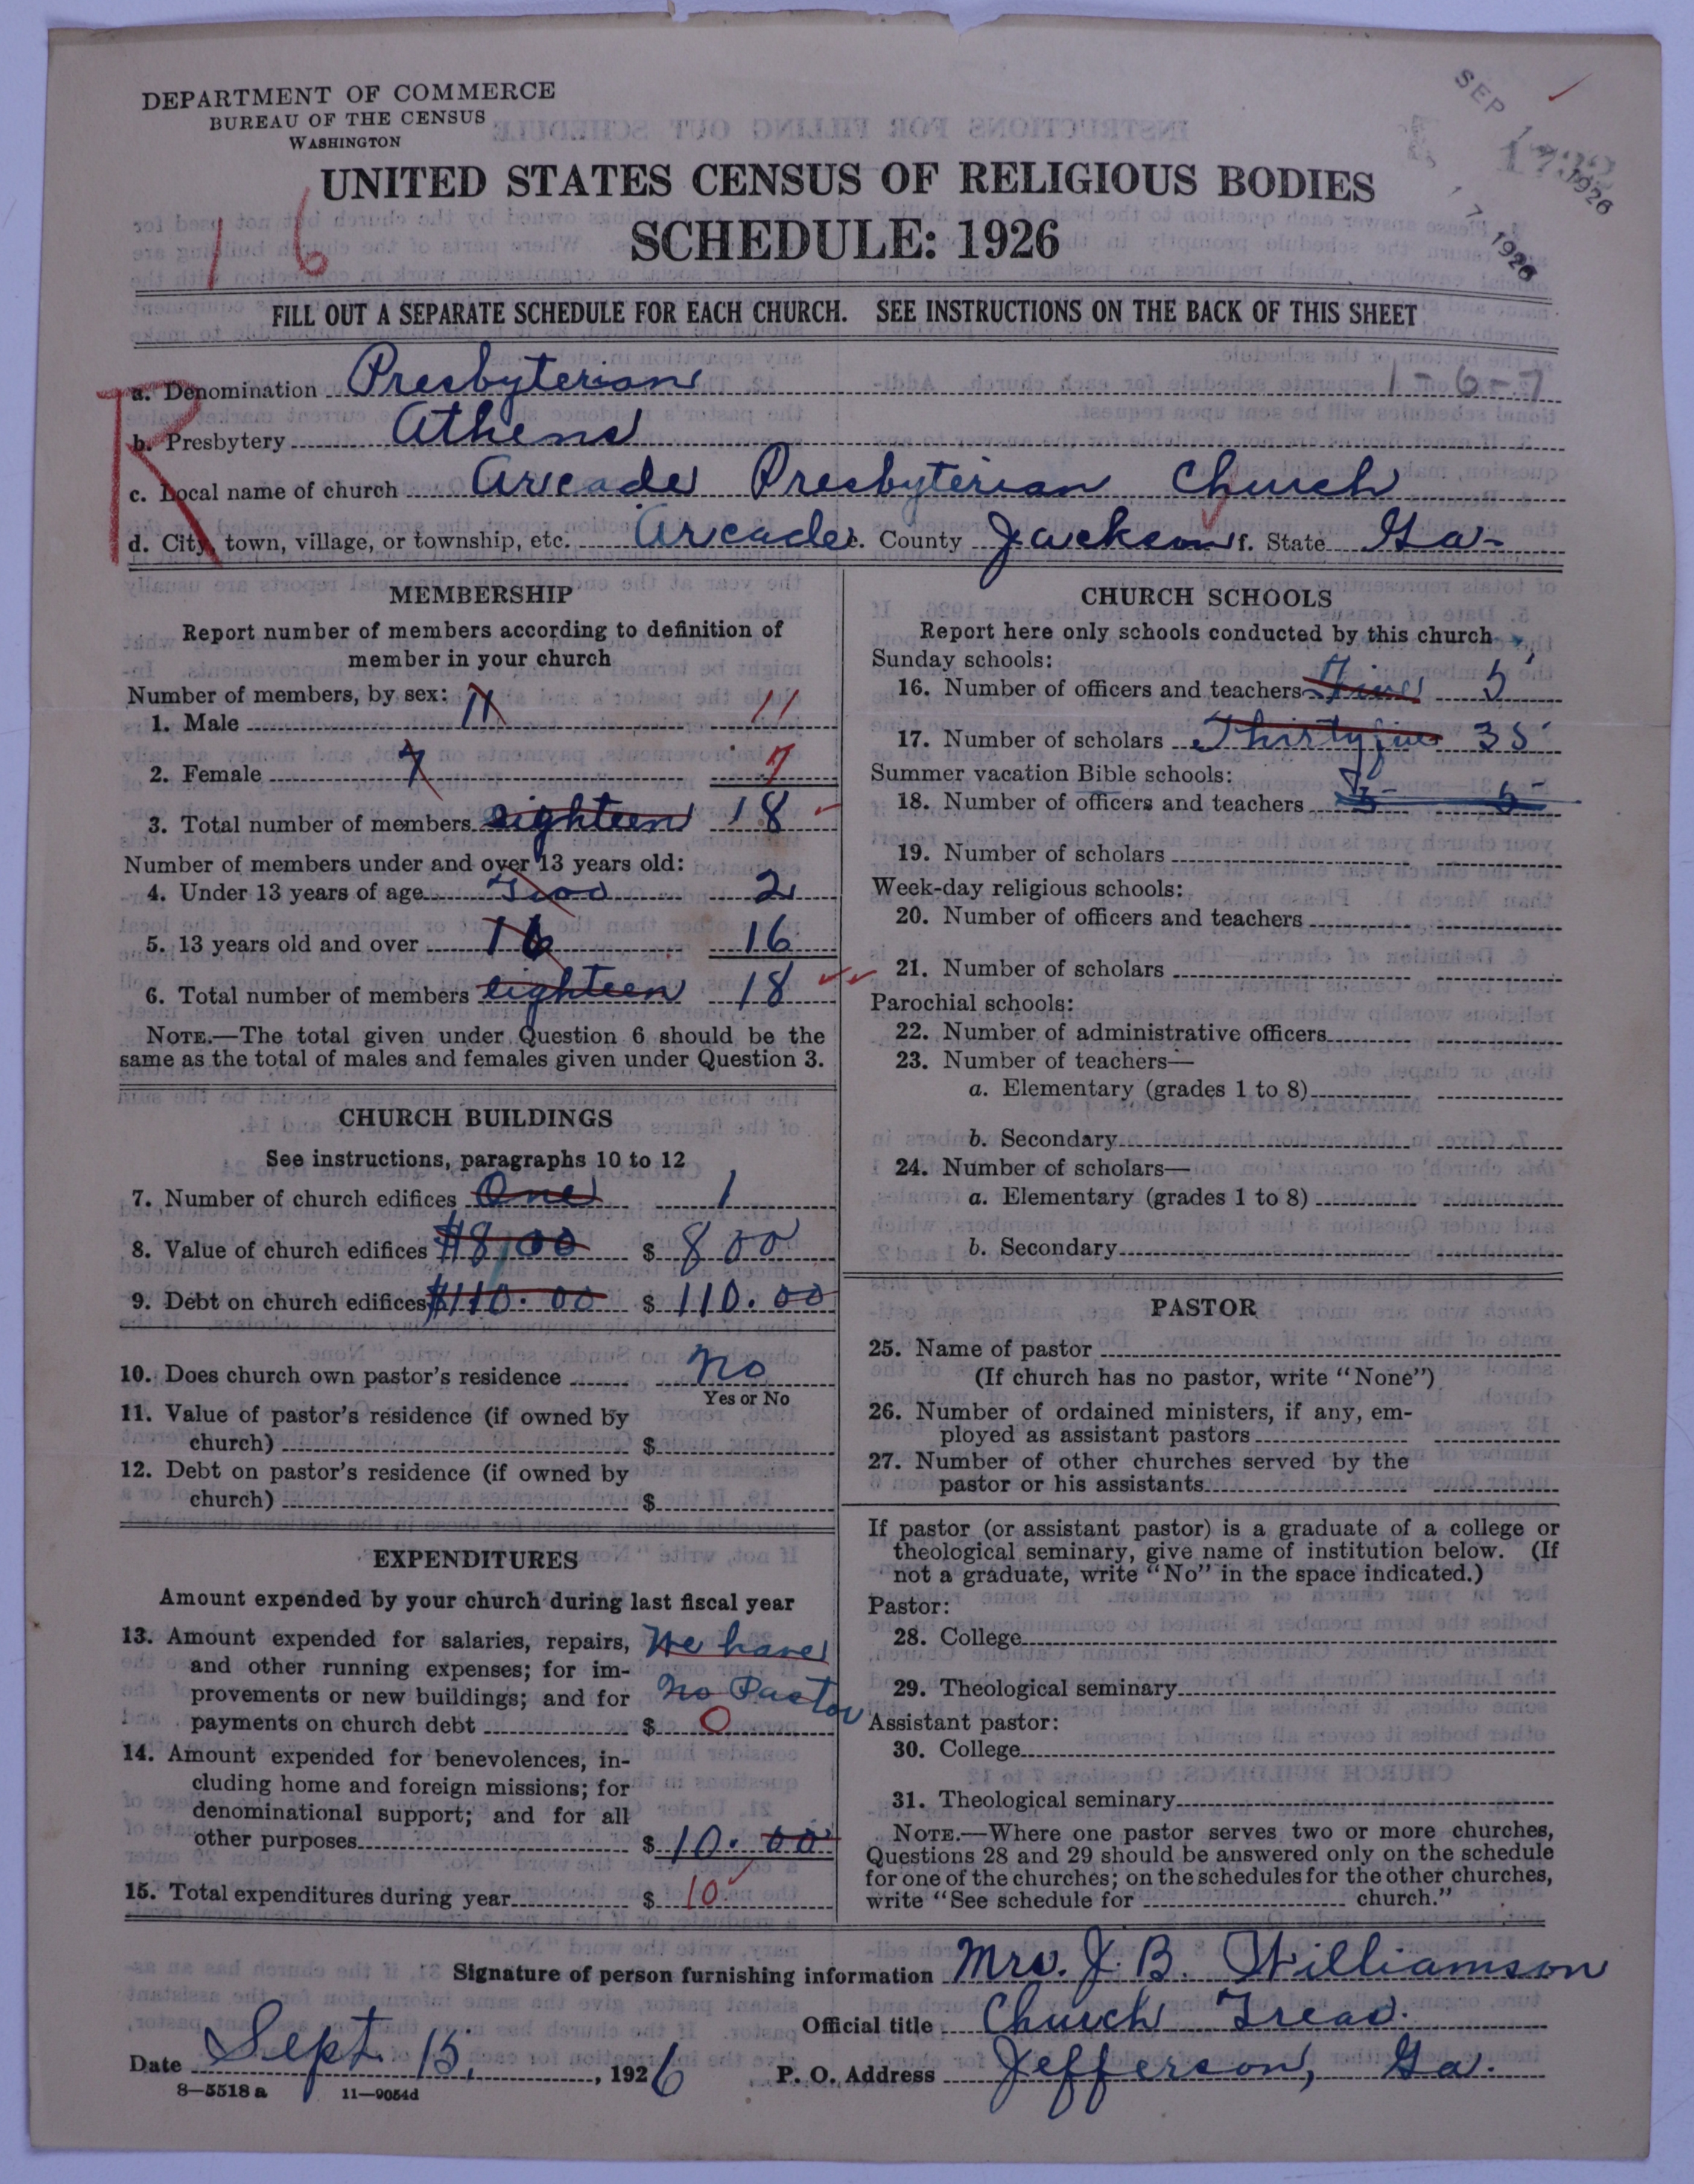 DEPARTMENT OF COMMERCE
BUREAU OF THE CENSUS
WASHINGTON
SEP 17 1926
UNITED STATES CENSUS OF RELIGIOUS BODIES
SCHEDULE: 1926
16
FILL OUT A SEPARATE SCHEDULE FOR EACH CHURCH. SEE INSTRUCTIONS ON THE BACK OF THIS SHEET
R
a. Denomination Presbyterian 1-6-7
b. Presbytery Athens
c. Local name of church Arcade Presbyterian Church
d. City, town, village, or township, etc. Arcade e. County Jackson f. State Ga-
MEMBERSHIP
Report number of members according to definition of
member in your church
Number of members, by sex:
1. Male 11 11
2. Female 7 7
3. Total number of members eighteen 18
Number of members under and over 13 years old:
4. Under 13 years of age Two 2
5. 13 years old and over 16 16
6. Total number of members eighteen 18
NOTE.—The total given under Question 6 should be the
same as the total of males and females given under Question 3.
CHURCH BUILDINGS
See instructions, paragraphs 10 to 12
7. Number of church edifices One 1
8. Value of church edifices $800 $ 800
9. Debt on church edifices $110.00 $ 110.00
10. Does church own pastor's residence No
Yes or No
11. Value of pastor's residence (if owned by
church) $
12. Debt on pastor's residence (if owned by
church) $
EXPENDITURES
Amount expended by your church during last fiscal year
13. Amount expended for salaries, repairs, We have
and other running expenses; for im-
provements or new buildings; and for no Pastor
payments on church debt $ 0
14. Amount expended for benevolences, in-
cluding home and foreign missions; for
denominational support; and for all
other purposes $ 10.00
15. Total expenditures during year $ 10
CHURCH SCHOOLS
Report here only schools conducted by this church
Sunday schools:
16. Number of officers and teachers Five 5
17. Number of scholars Thirty five 35
Summer vacation Bible schools:
18. Number of officers and teachers 5 5
19. Number of scholars
Week-day religious schools:
20. Number of officers and teachers
21. Number of scholars
Parochial schools:
22. Number of administrative officers
23. Number of teachers—
a. Elementary (grades 1 to 8)
b. Secondary
24. Number of scholars—
a. Elementary (grades 1 to 8)
b. Secondary
PASTOR
25. Name of pastor
(If church has no pastor, write "None")
26. Number of ordained ministers, if any, em-
ployed as assistant pastors
27. Number of other churches served by the
pastor or his assistants
If pastor (or assistant pastor) is a graduate of a college or
theological seminary, give name of institution below. (If
not a graduate, write "No" in the space indicated.)
Pastor:
28. College
29. Theological seminary
Assistant pastor:
30. College
31. Theological seminary
NOTE.—Where one pastor serves two or more churches,
Questions 28 and 29 should be answered only on the schedule
for one of the churches; on the schedules for the other churches,
write "See schedule for church."
Signature of person furnishing information Mrs. J. B. Williamson
Official title Church Treas.
Date Sept. 15, 1926 P. O. Address Jefferson, Ga.
8—5518 a 11—9054d